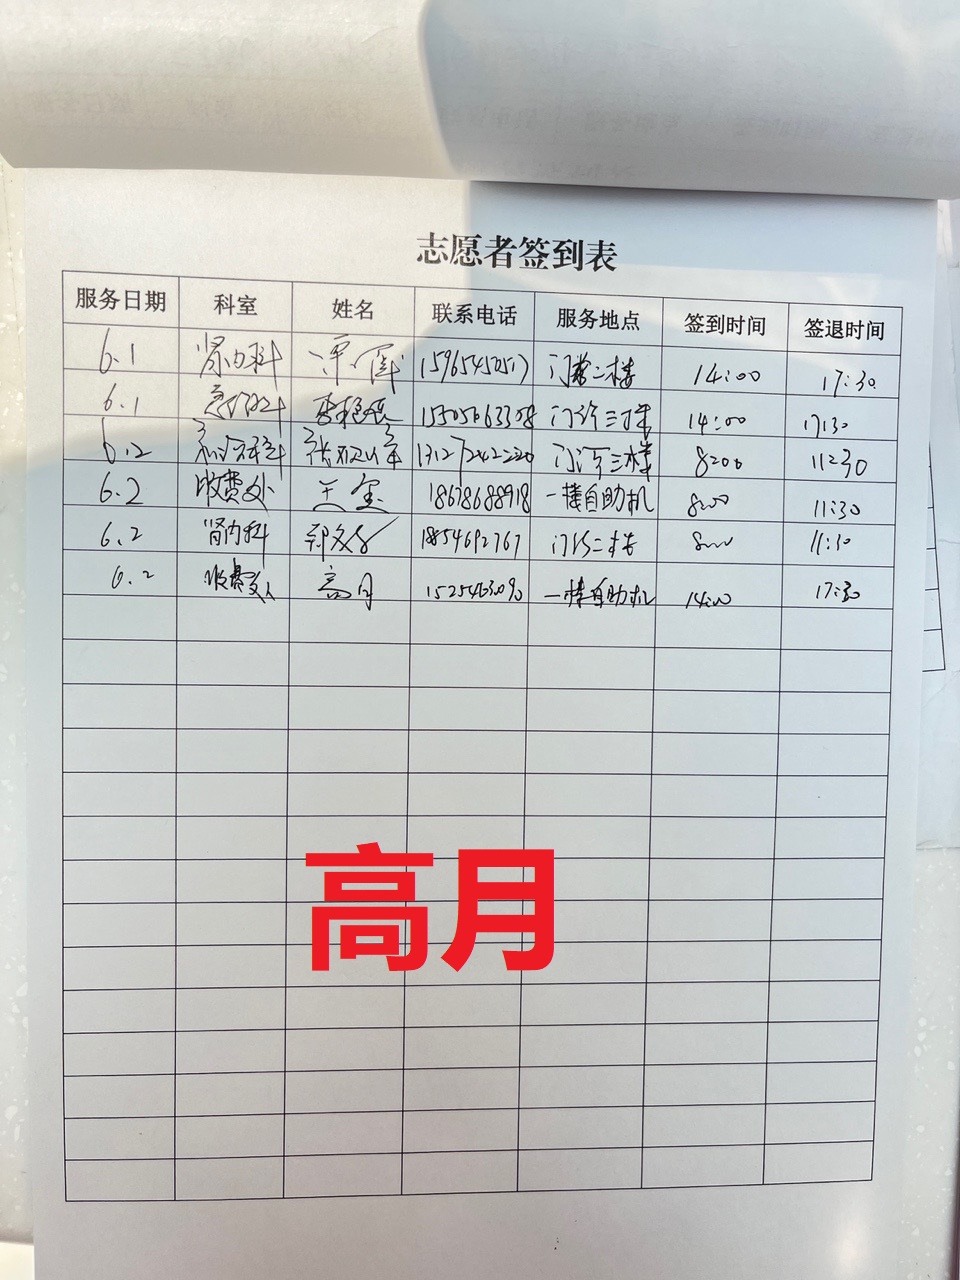 志愿者签到表
服务日期 科室 姓名 联系电话 服务地点 签到时间 签退时间
6.1 肾内科 15965452517 门诊二楼 14:00 17:30
6.1 门诊三楼 14:00 17:30
6.2 13127242220 门诊三楼 8:00 11:30
6.2 收费处 18678688918 一楼自助机 8:00 11:30
6.2 肾内科 18854692767 门诊二楼 11:30
6.2 收费处 高月 一楼自助机 14:00 17:30
高月